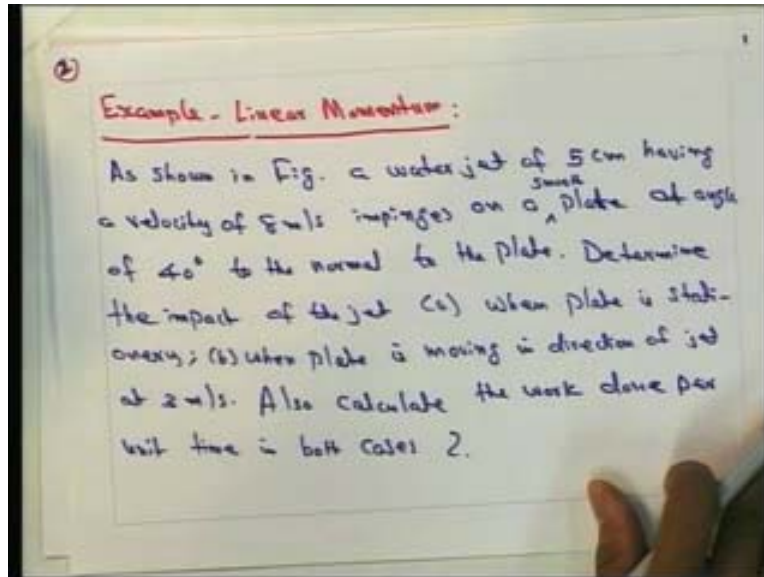 ②
Example - Linear Momentum:
As shown in Fig. a water jet of 5 cm having
a velocity of 8 m/s impinges on a smooth plate at angle
of 40° to the normal to the plate. Determine
the impact of the jet (a) when plate is stati-
onery; (b) when plate is moving in direction of jet
at 2 m/s. Also calculate the work done per
unit time in both cases ?.